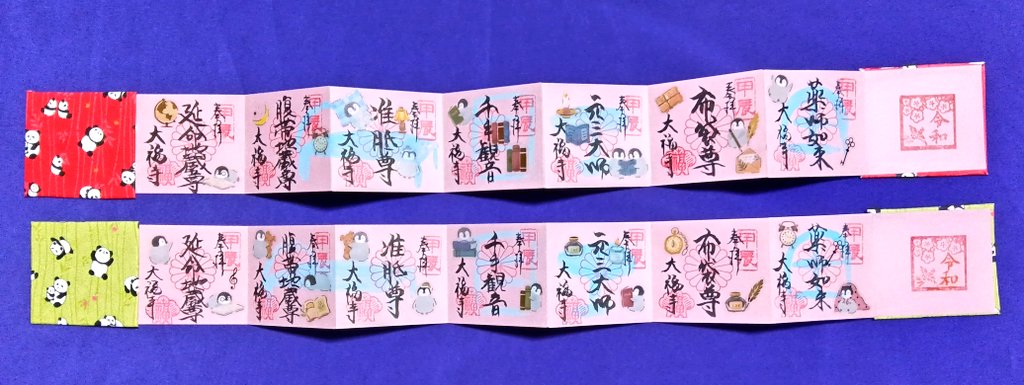 令和
奉拝
甲辰
薬師如来
大福寺
奉拝
甲辰
布袋尊
大福寺
奉拝
甲辰
元三大師
大福寺
奉拝
甲辰
千手観音
大福寺
奉拝
甲辰
准胝尊
大福寺
奉拝
甲辰
腹帯地蔵尊
大福寺
奉拝
甲辰
延命地蔵尊
大福寺
令和
奉拝
甲辰
薬師如来
大福寺
奉拝
甲辰
布袋尊
大福寺
奉拝
甲辰
元三大師
大福寺
奉拝
甲辰
千手観音
大福寺
奉拝
甲辰
准胝尊
大福寺
奉拝
甲辰
腹帯地蔵尊
大福寺
奉拝
甲辰
延命地蔵尊
大福寺